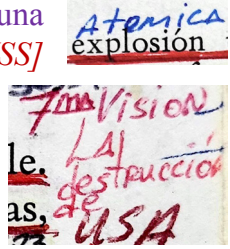 una
SS]
Atomica
explosión
7ma Vision
le. LA
destrucción
as, de
23 USA